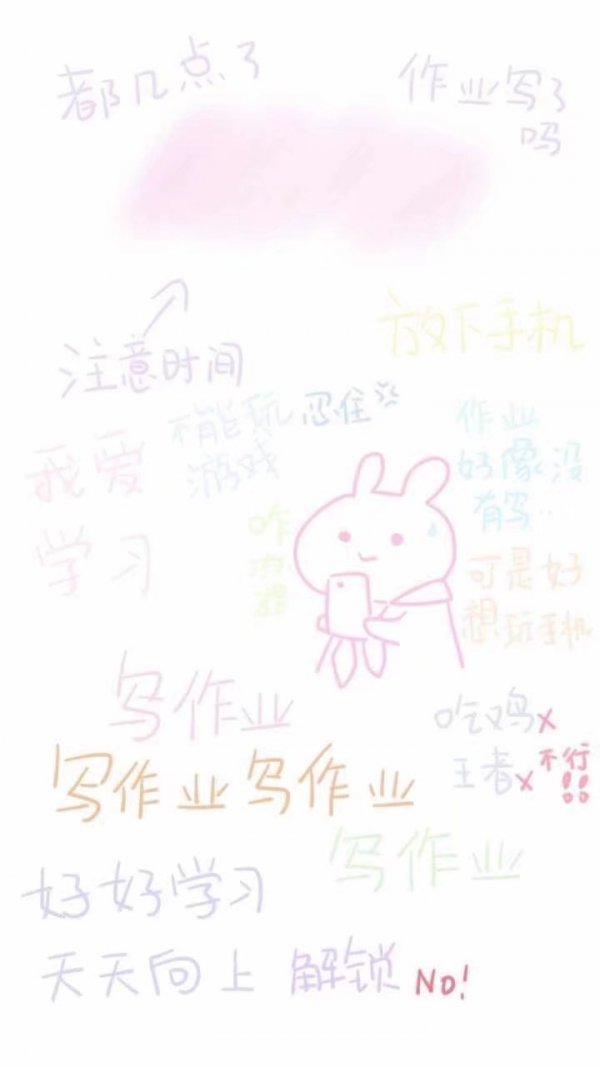 都几点了
作业写了
吗
注意时间
放下手机
我爱
学习
不能玩
游戏
忍住
作业
好像没
有写..
咋
办
可是好
想玩手机
写作业
吃鸡x
王者x
不行!!
写作业写作业
写作业
好好学习
天天向上
解锁 No!